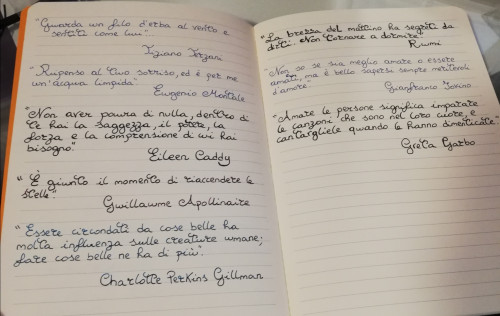 "Guarda un filo d'erba al vento e
sentiti come lui".
Tiziano Terzani
"Ripenso al tuo sorriso, ed è per me
un'acqua limpida".
Eugenio Montale
"Non aver paura di nulla, dentro di
te hai la saggezza, il potere, la
forza e la comprensione di cui hai
bisogno".
Eileen Caddy
"È giunto il momento di riaccendere le
stelle".
Guillaume Apollinaire
"Essere circondati da cose belle ha
molta influenza sulle creature umane;
fare cose belle ne ha di più".
Charlotte Perkins Gillman
"La brezza del mattino ha segreti da
dirti. Non tornare a dormire".
Rumi
"Non so se sia meglio amare o essere
amati, ma è bello sapersi sempre meritevoli
d'amore."
Gianfranco Iovino
"Amare le persone significa imparare
le canzoni che sono nel loro cuore, e
cantargliele quando le hanno dimenticate"
Greta Garbo